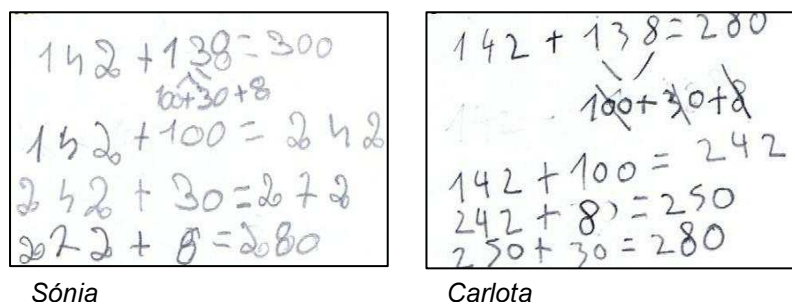 142 + 138 = 300
100 + 30 + 8
142 + 100 = 242
242 + 30 = 272
272 + 8 = 280
Sónia
142 + 138 = 280
100 + 30 + 8
142 + 100 = 242
242 + 8 = 250
250 + 30 = 280
Carlota